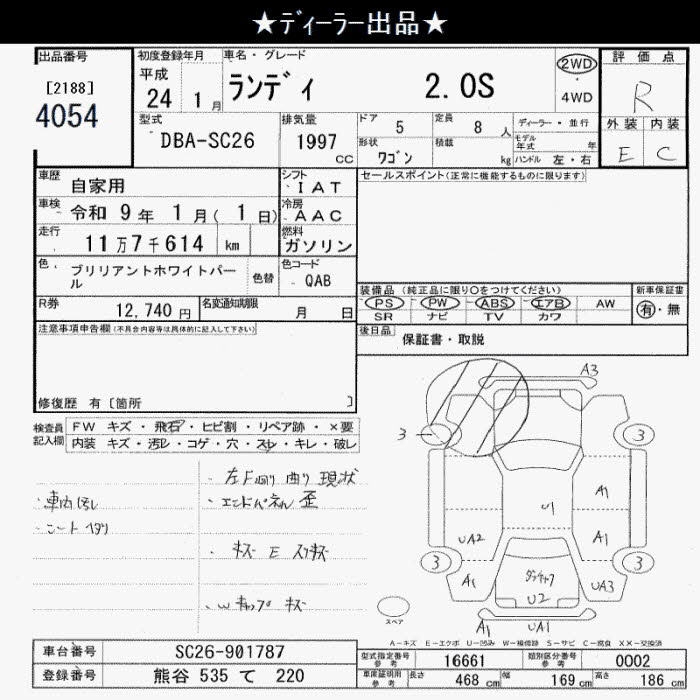 ★ディーラー出品★
出品番号
[2188]
4054
初度登録年月
平成
24 1月
車名・グレード
ランディ 2.0S
2WD
4WD
評価点
R
外装 内装
E C
型式
DBA-SC26
排気量
1997
CC
ドア 5
定員 8 人
形状 ワゴン
積載 kg
ディーラー・並行
モデル年式 年
ハンドル 左・右
車歴 自家用
車検 令和 9年 1月( 1日)
走行 11万7千614 km
色 ブリリアントホワイトパール
色替
シフト IAT
冷房 AAC
燃料 ガソリン
色コード QAB
R券 12,740円
名変通知期限 月 日
セールスポイント(正常に機能するものに限ります)
装備品 (純正品に限り○をつけてください)
PS PW ABS エアB AW
SR ナビ TV カワ
新車保証書
有・無
後日品 保証書・取説
注意事項申告欄(不具合内容等は具体的に記入して下さい)
修復歴 有〔箇所 〕
検査員記入欄
FW キズ・飛石・ヒビ割・リペア跡・×要
内装 キズ・汚レ・コゲ・穴・スレ・キレ・破レ
・車内汚し
・シートヘタリ
・左F廻り曲り現状
・エンドパネル歪
・キズE スリキズ
・Wキャップキズ
A3
3
3
A1
U1
A1
UA2
3
3
A1
ダンキャフ
U2
UA3
スペア
A1 UA1
A-キズ E-エクボ U-凹み W-補修跡 S-サビ C-腐食 XX-交換済
車台番号 SC26-901787
登録番号 熊谷 535 て 220
型式指定番号参考 16661
類別区分番号参考 0002
車庫証明用参考
長さ 468 cm
幅 169 cm
高さ 186 cm